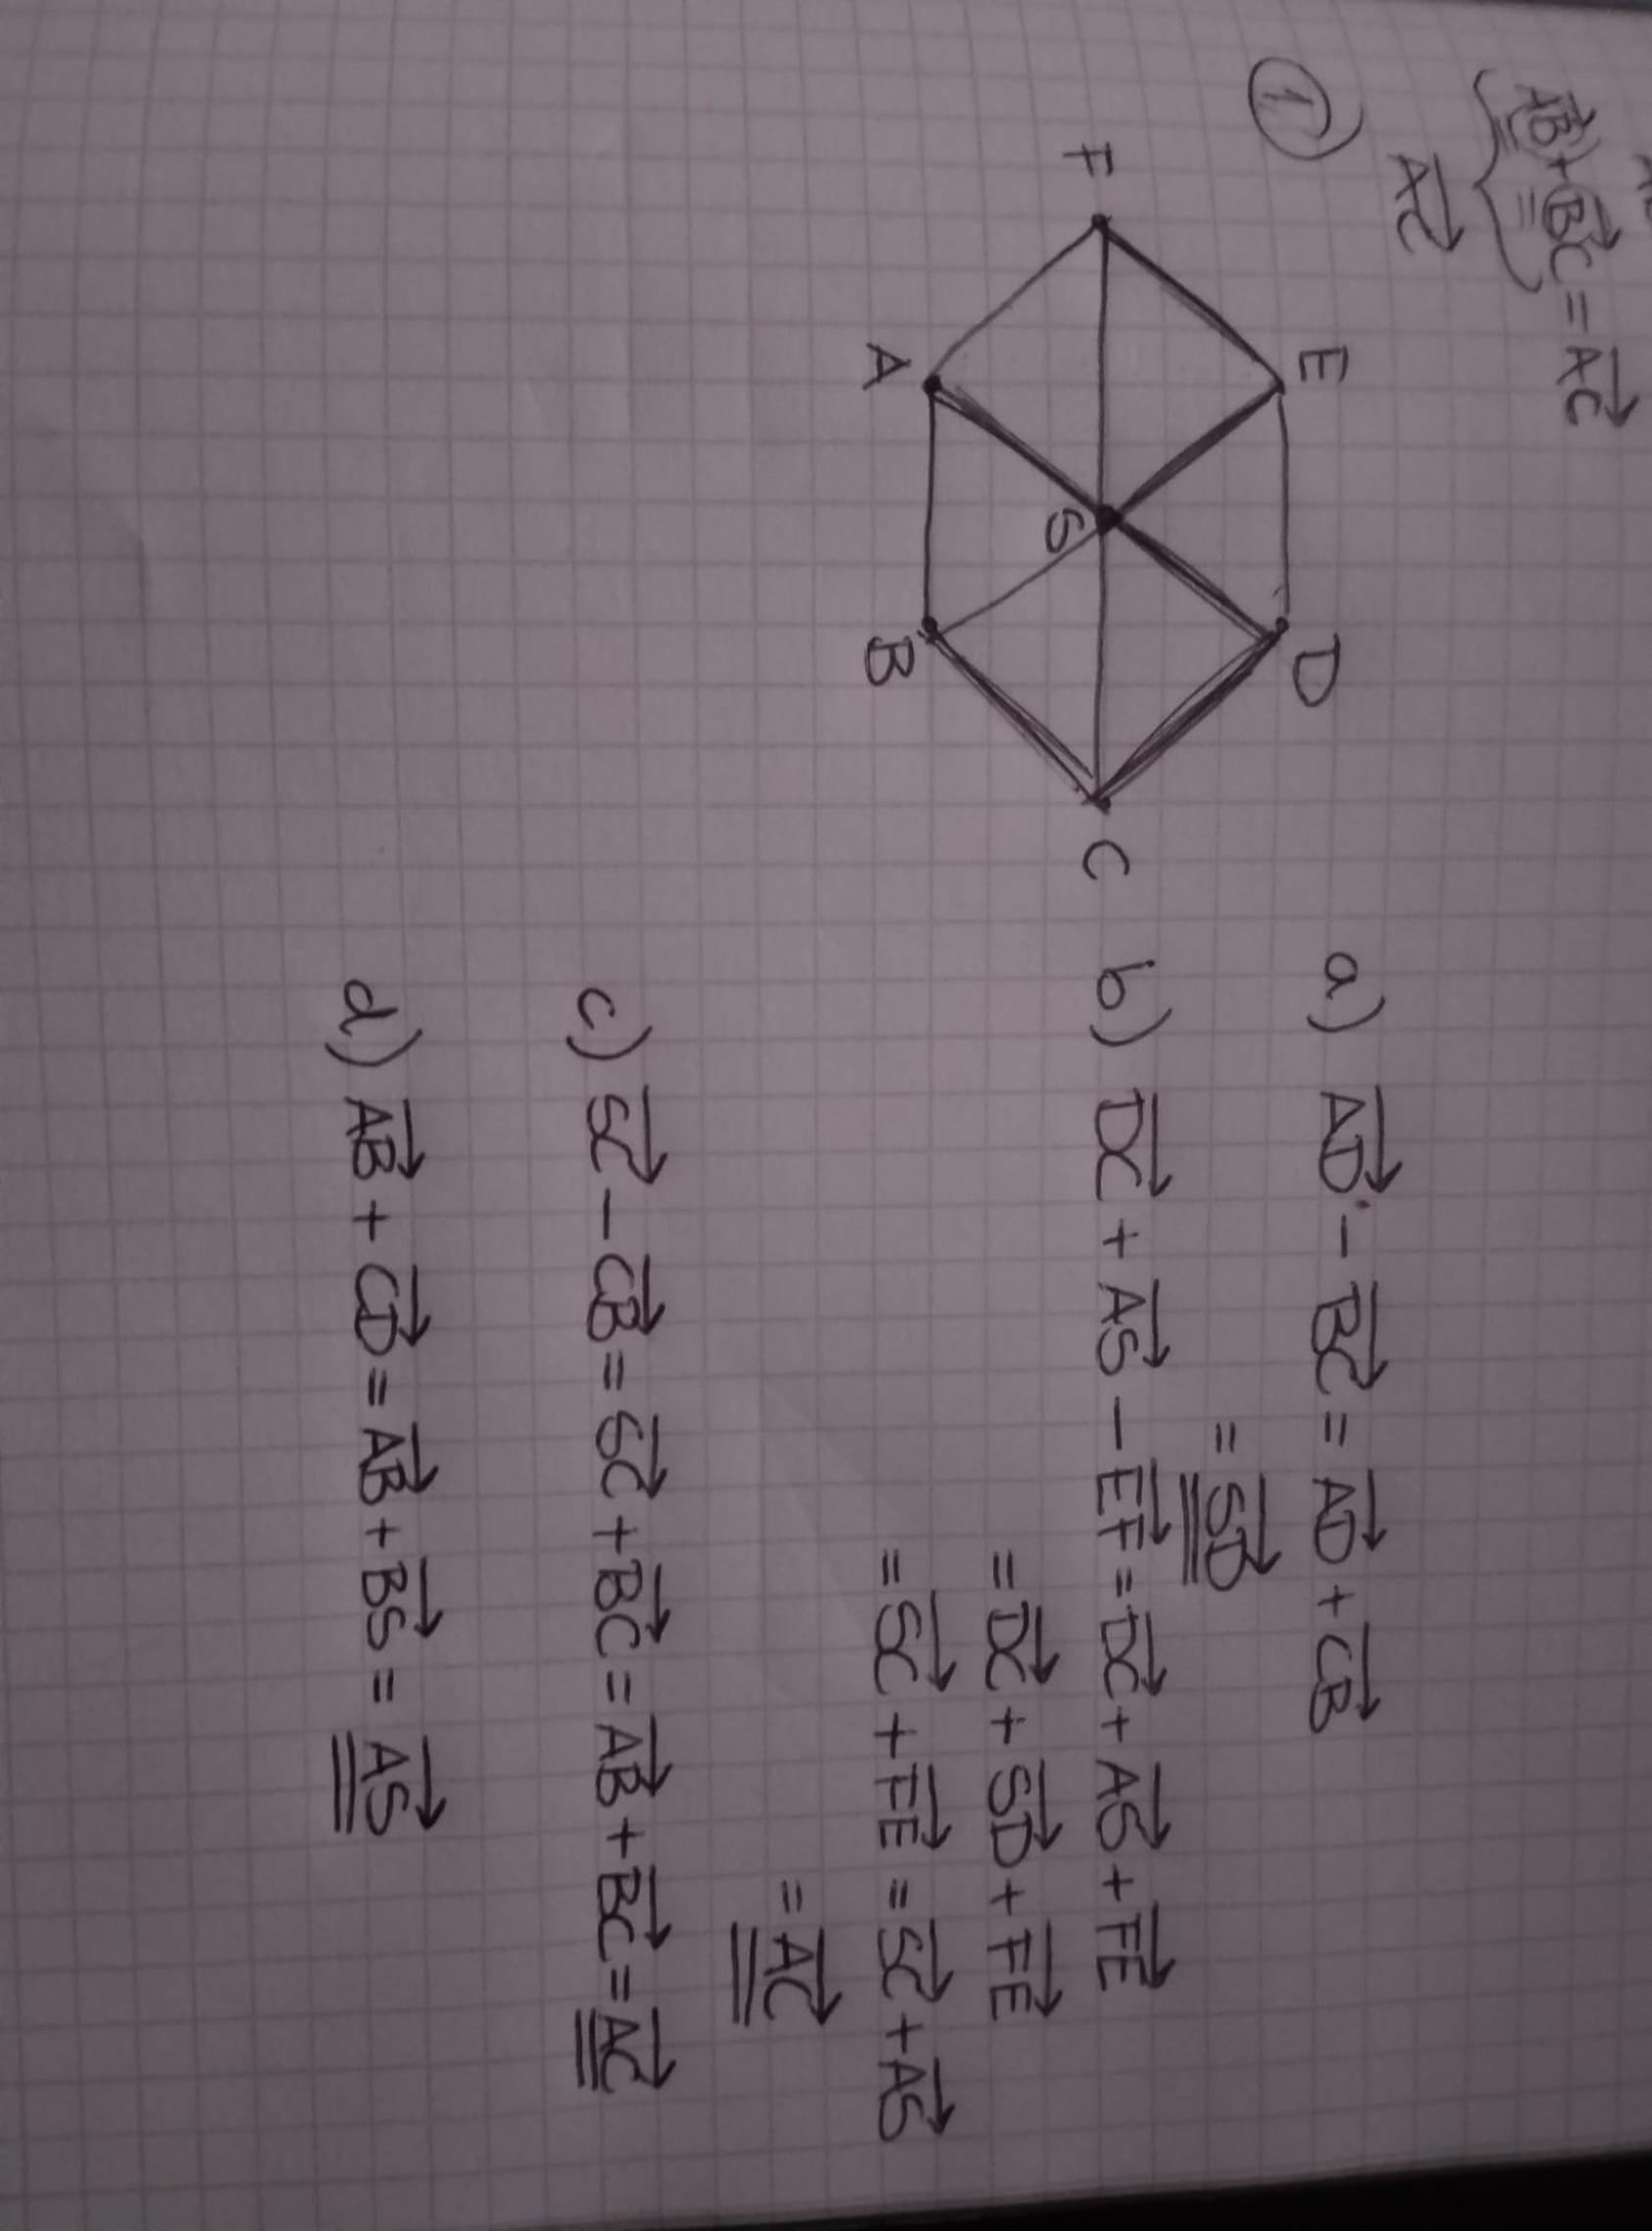 AB⃗ + BC⃗ = AC⃗
AC⃗
1)
F
E
D
A
S
B
C
a) AD⃗ - BC⃗ = AD⃗ + CB⃗
= SD⃗
b) DC⃗ + AS⃗ - EF⃗ = DC⃗ + AS⃗ + FE⃗
= DC⃗ + SD⃗ + FE⃗
= SC⃗ + FE⃗ = SC⃗ + AS⃗
= AC⃗
c) SC⃗ - CB⃗ = SC⃗ + BC⃗ = AB⃗ + BC⃗ = AC⃗
d) AB⃗ + CD⃗ = AB⃗ + BS⃗ = AS⃗